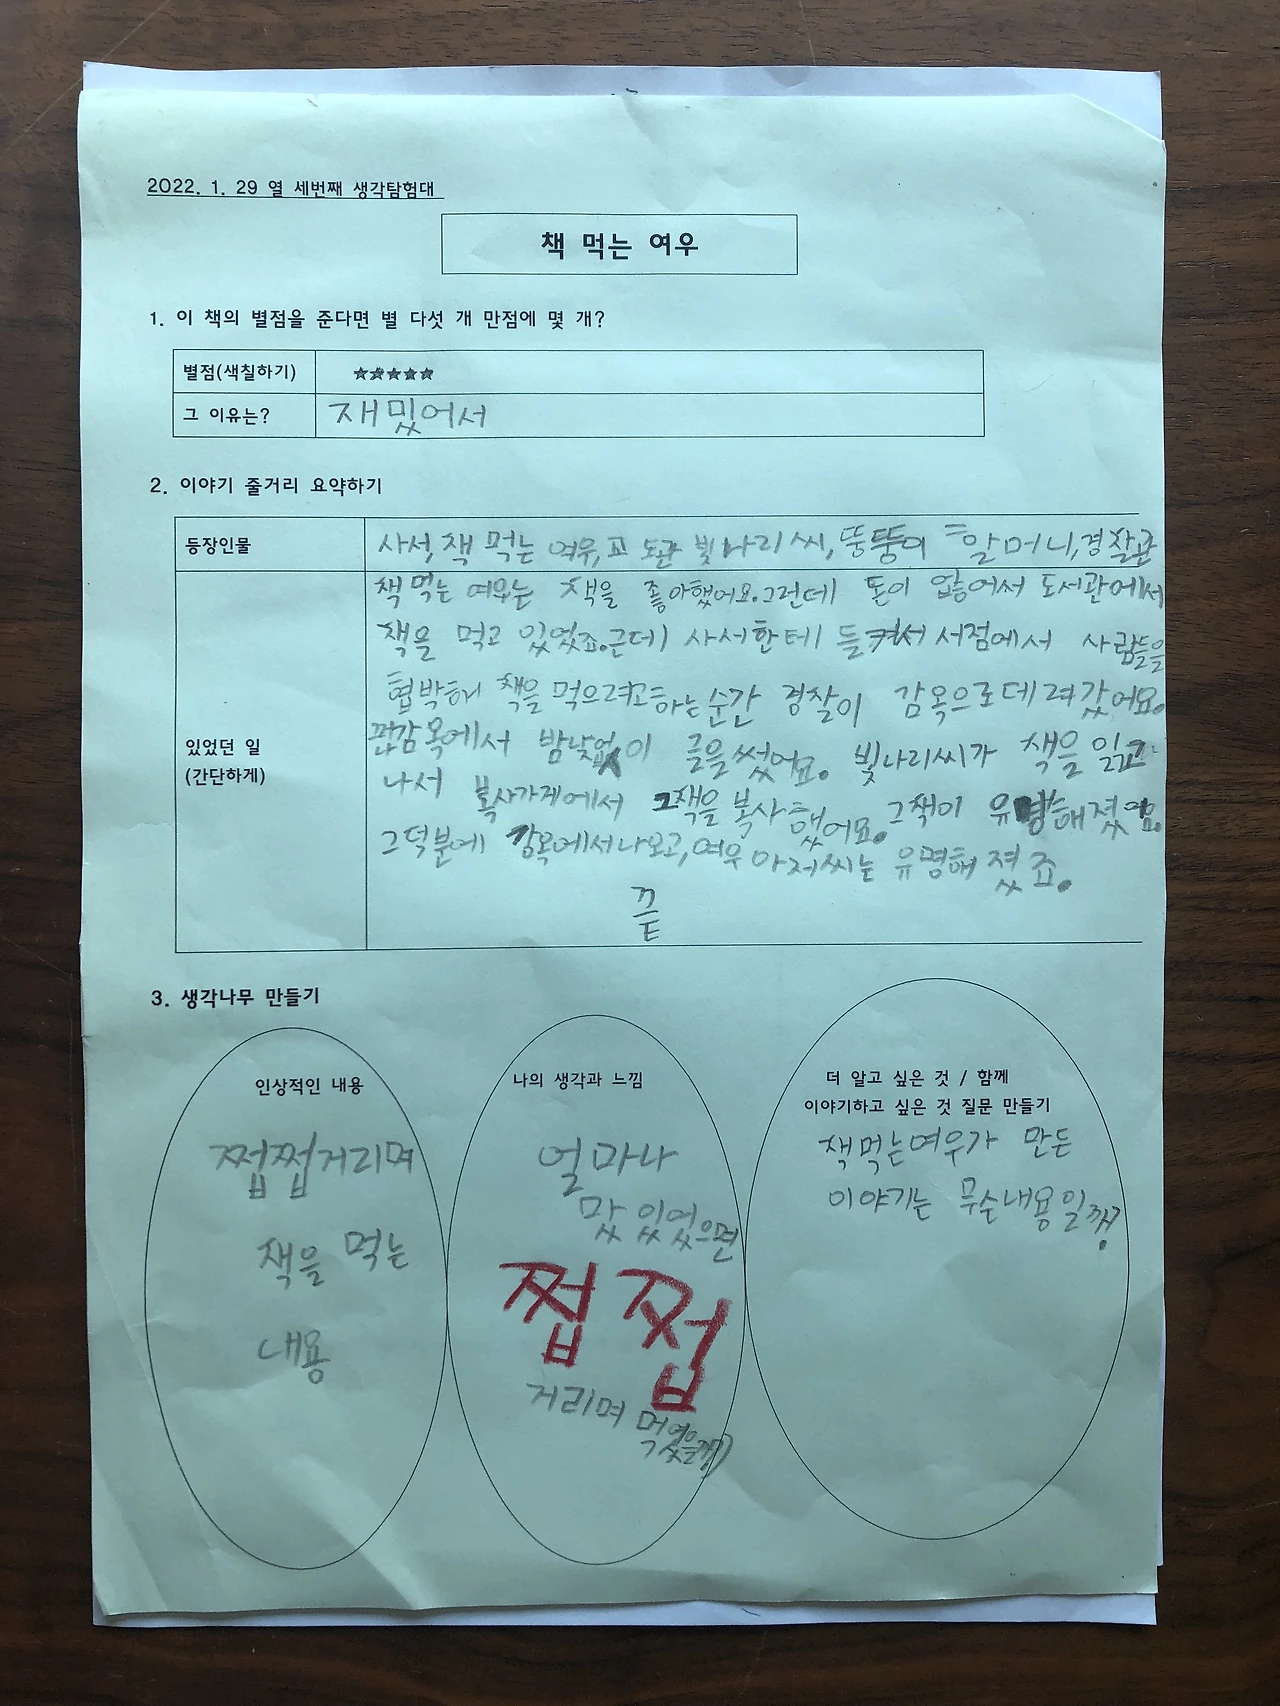 2022. 1. 29 열 세번째 생각탐험대
책 먹는 여우
1. 이 책의 별점을 준다면 별 다섯 개 만점에 몇 개?
별점(색칠하기) ★★★★★
그 이유는? 재밌어서
2. 이야기 줄거리 요약하기
등장인물 사서, 책 먹는 여우, 교도관 빛나리씨, 뚱뚱이 할머니, 경찰관
있었던 일
(간단하게)
책 먹는 여우는 책을 좋아했어요. 그런데 돈이 없어서 도서관에서
책을 먹고 있었죠. 근데 사서한테 들켜서 서점에서 사람들을
협박해 책을 먹으려고 하는 순간 경찰이 감옥으로 데려갔어요.
감옥에서 밤낮없이 글을 썼어요. 빛나리씨가 책을 읽고
나서 복사가게에서 그책을 복사했어요. 그책이 유명해졌어요.
그덕분에 감옥에서 나오고, 여우 아저씨는 유명해졌죠.
끝
3. 생각나무 만들기
인상적인 내용
쩝쩝거리며
책을 먹는
내용
나의 생각과 느낌
얼마나
맛있었으면
쩝쩝
거리며 먹었을까?
더 알고 싶은 것 / 함께
이야기하고 싶은 것 질문 만들기
책먹는여우가 만든
이야기는 무슨내용일까?